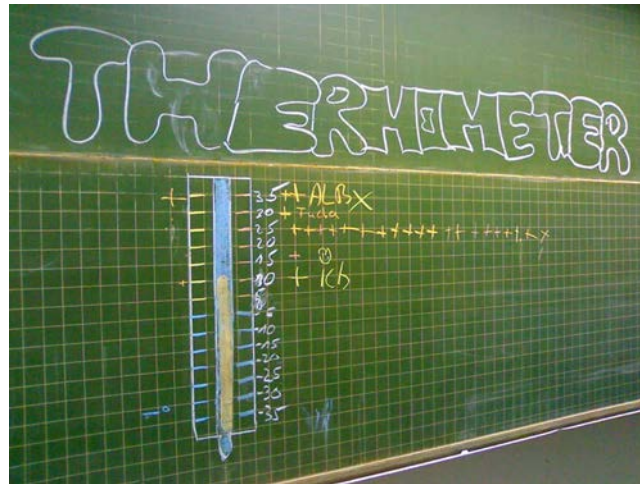 THERMOMETER
35 ++ ALB X
30 +
25 ++++++++++ ++ +++++++
20
15 +
10 + Ich
-5
-10
-15
-20
-25
-30
-35
1°